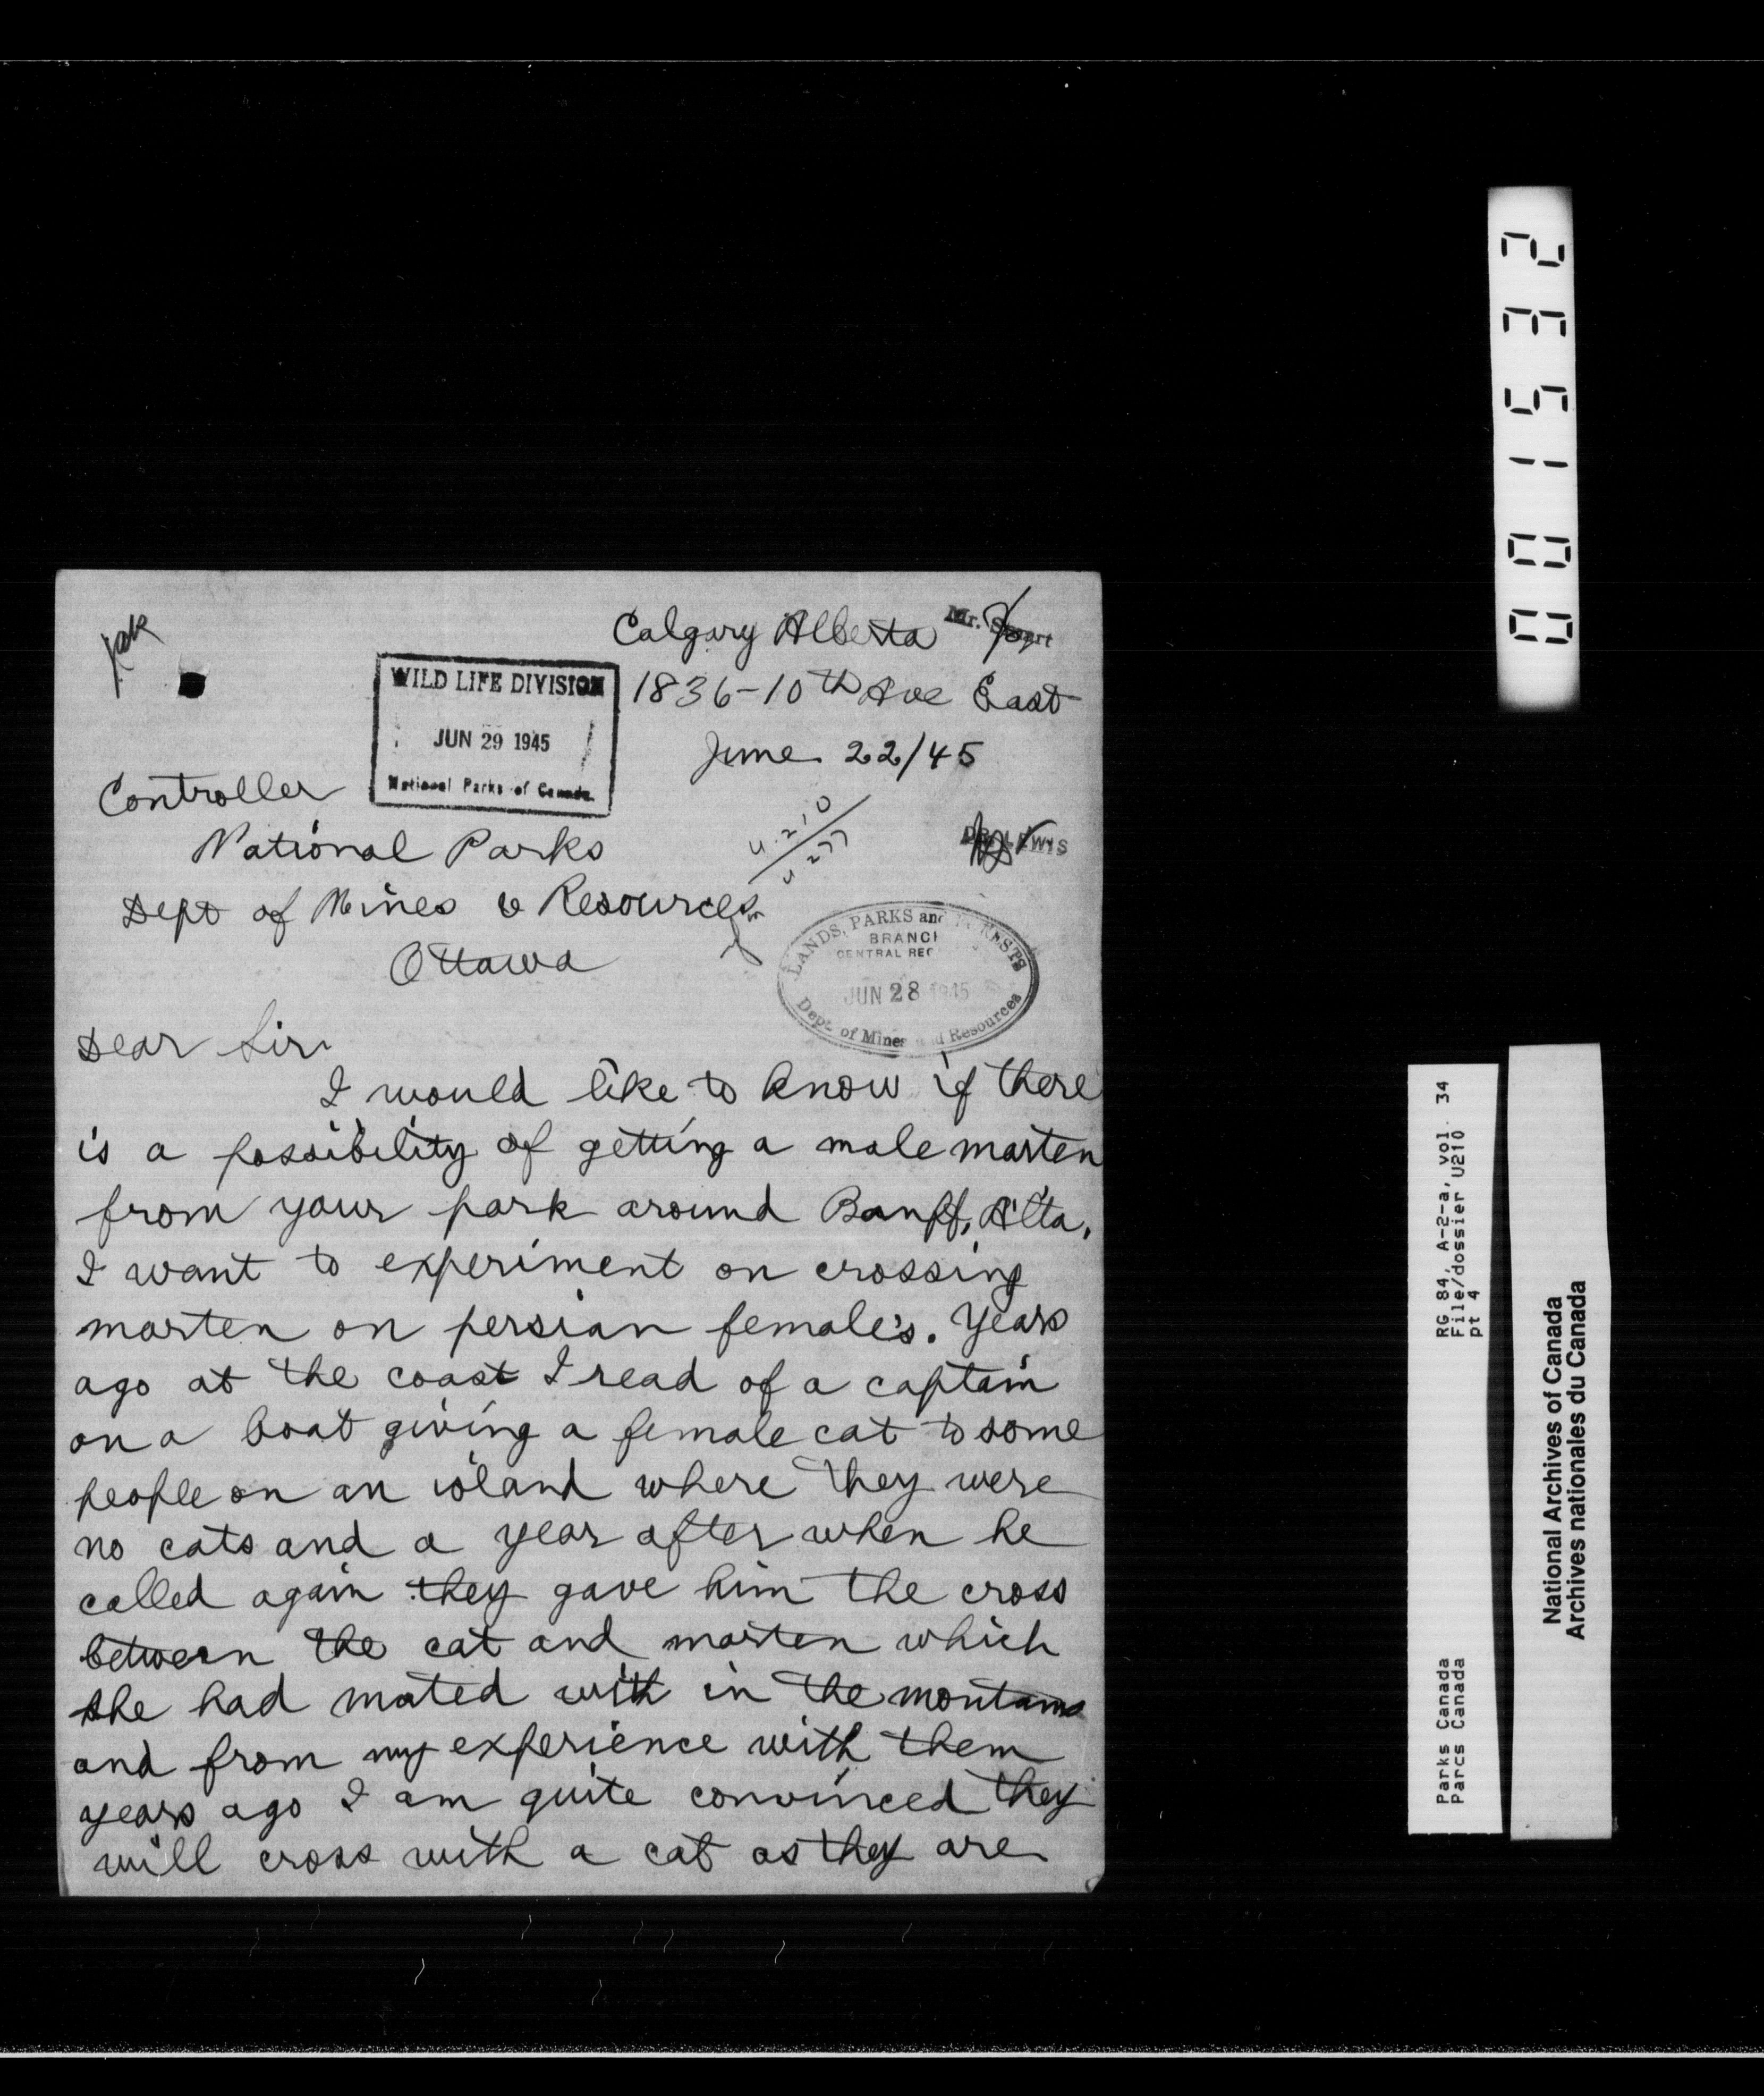 Calgary Alberta
Mr.
1836-10th Ave East
June 22/45
WILD LIFE DIVISION
JUN 29 1945
National Parks of Canada.
Controller
National Parks
Dept of Mines & Resources
Ottawa
U.210
U 277
DR. LEWIS
LANDS, PARKS and FORESTS
BRANCH
CENTRAL REC
JUN 28 1945
Dept. of Mines and Resources
Dear Sir
I would like to know if there
is a possibility of getting a male marten
from your park around Banff, Alta,
I want to experiment on crossing
marten on persian female's. Years
ago at the coast I read of a captain
on a boat giving a female cat to some
people on an island where they were
no cats and a year after when he
called again they gave him the cross
between the cat and marten which
she had mated with in the montains
and from my experience with them
years ago I am quite convinced they
will cross with a cat as they are
001532
RG 84, A-2-a, vol. 34
File/dossier U210
pt 4
Parks Canada
Parcs Canada
National Archives of Canada
Archives nationales du Canada